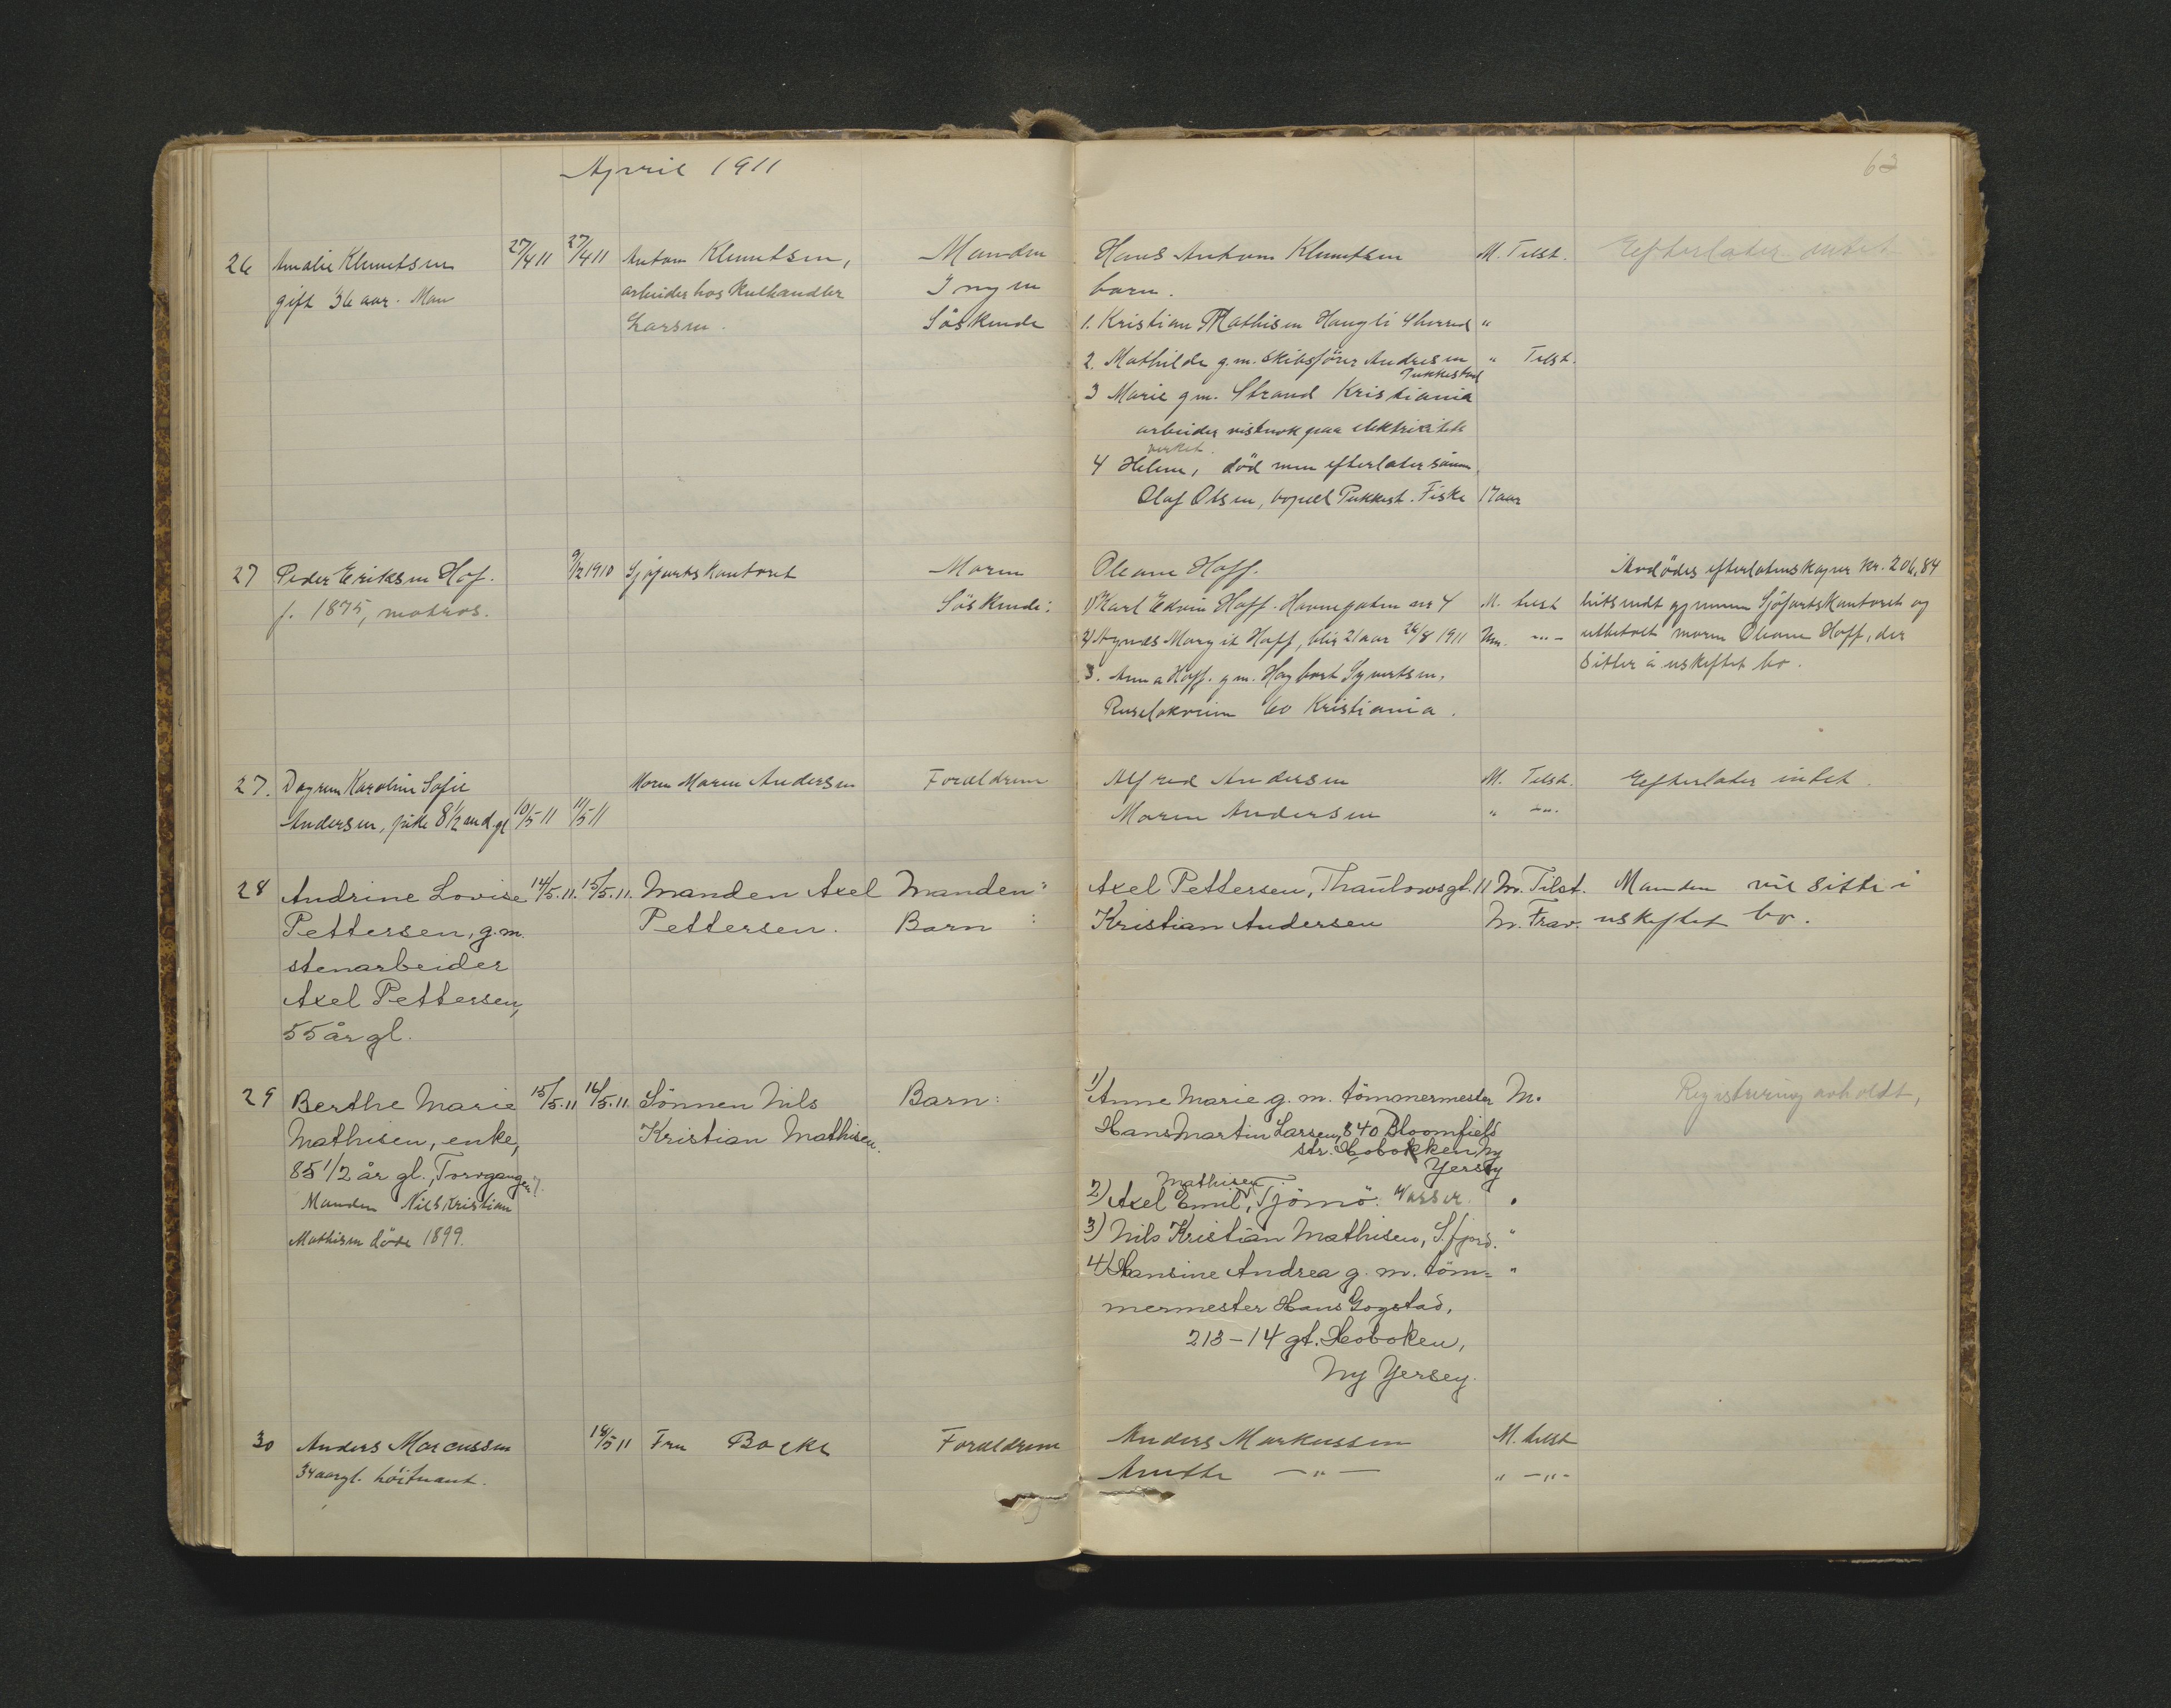 April 1911
63
26 Amalie Klemetsen 27/4 11 27/4 11 Antom Klemetsen, Manden Hans Antom Klemetsen M. Tilst. Efterlater intet
gift 36 aar. Man arbeider hos Kulhandler Ingen barn.
Larsen. Söskende 1. Kristian Mathisen Haugli 4 herred "
2. Mathilde g.m. Skibsfører Andresen " Tilst.
Pukkestad
3 Marie g m. Strand Kristiania
arbeider vistnok paa elektricitets
verket.
4 Helene, död men efterlater sönn
Olaf Olsen, bopæl Pukkest. Fiske 17 aar
27 Peder Eriksen Hof. 9/12 1910 Sjøfartskontoret Moren Oleane Hoff. Avdødes efterlatenskaper kr. 206,84
f. 1875, matros. Söskende: 1) Karl Edvin Hoff. Havnegaten nr 4 M. tilst hitsendt gjennem Sjøfartskontoret og
2) Agnes Margit Hoff, blir 21 aar 26/8 1911 Um. -"- utbetalt moren Oleane Hoff, der
3. Anna Hoff. g m. Hagbart Syvertsen, sitter i uskiftet bo.
Ruseløkveien 60 Kristiania.
27. Dagrun Karoline Sofie Moren Maren Andersen Forældrene Alfred Andersen M. Tilst. Efterlater intet.
Andersen, pike 8 1/2 md. gl 10/5 11 11/5 11 Maren Andersen " -"-
28 Andrine Lovise 14/5.11. 15/5.11. Manden Axel Manden: Axel Pettersen, Thaulowsgt. 11 M. Tilst. Manden vil sitte i
Pettersen, g.m. Pettersen. Barn : Kristian Andersen M. Frav. uskiftet bo.
stenarbeider
Axel Pettersen,
55 år gl.
29 Berthe Marie 15/5.11 16/5.11. Sönnen Nils Barn: 1) Anne Marie g. m. tömmermester M. Registrering avholdt,
Mathisen, enke, Kristian Mathisen. Hans Martin Larsen, 840 Bloomfield
str. Hobokken Ny
85 1/2 år gl., Torvgangen 7. Yersey
Mathisen
Manden Nils Kristian 2) Axel Emil, Tjömö. Vasser "
Mathisen døde 1899. 3) Nils Kristian Mathisen, S.fjord. "
4) Hansine Andrea g. m. töm= "
mermester Hans Gogstad,
213-14 gt. Hoboken,
Ny Yersey.
30 Anders Marcussen 18/5 11 Fru Bocke Forældrene Anders Markussen M. tilst
34 aar gl. Anette -"- " -"-